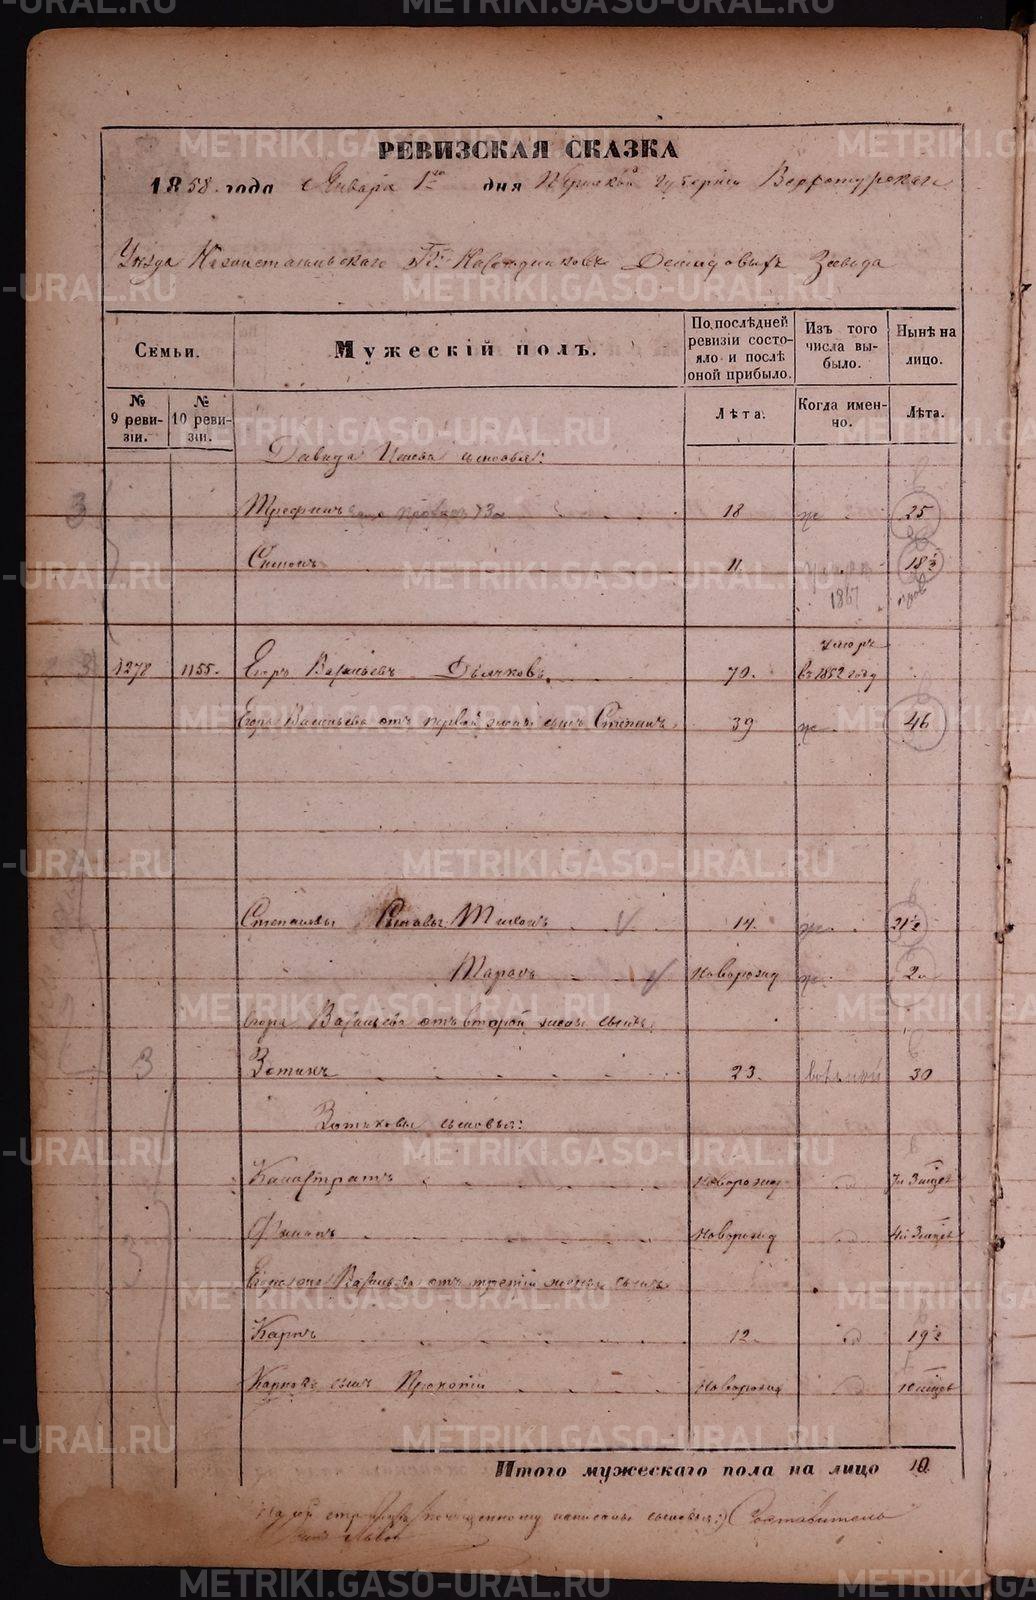 METRIKI.GASO-URAL.RU
РЕВИЗСКАЯ СКАЗКА
1858 года Января 1го дня Пермской губернии Верхотурскаго
Уезда Гг. Наследников Демидовыхъ Завода
Семьи.
Мужескій полъ.
По послѣдней ревизіи состояло и послѣ оной прибыло.
Изъ того числа выбыло.
Нынѣ на лицо.
№ 9 ревизіи.
№ 10 ревизіи.
Лѣта.
Когда именно.
Лѣта.
Давида сыновья:
Трефилъ 18 25
Симонъ 11 18½
1867
1278 1155. Егоръ Васильевъ Дьячковъ. 70. умеръ въ 1852 году
Егора Васильева отъ первой жены сынъ Степанъ 39 46
Степановы Сыновья Тихонъ 14. 21½
Тарасъ новорожд 2
Егора Васильева отъ второй жены сынъ.
Зотикъ 23. 30
Зотиковы сыновья:
Калистратъ новорожд
Филипъ новорожд
Васильева отъ третьей жены сынъ
Карпъ 12. 19½
Карповъ сынъ Прокопій новорожд
Итого мужескаго пола на лицо 10
по чищенному написано сыновья:) Составитель